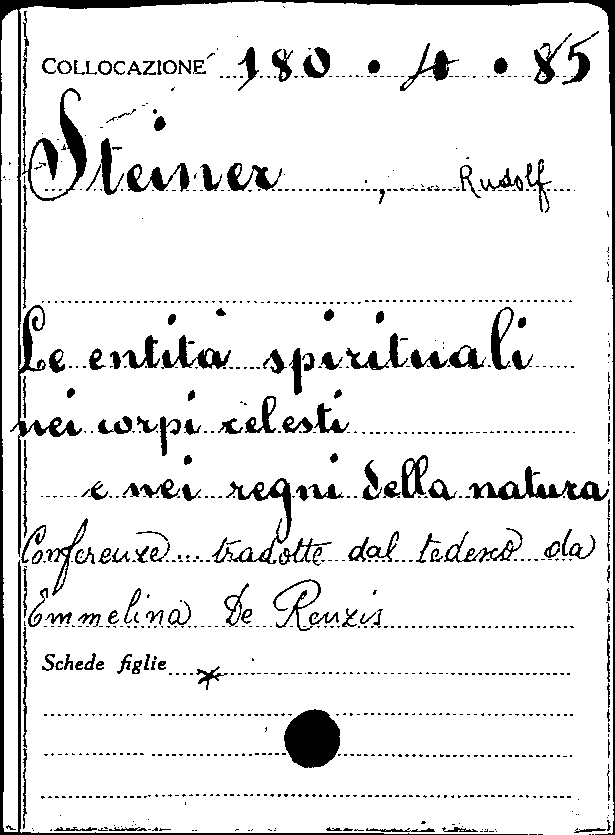 COLLOCAZIONE 180 • 4 • 85
Steiner, Rudolf
Le entità spirituali
nei corpi celesti
e nei regni della natura
Conferenze... tradotte dal tedesco da
Emmelina De Renzis
Schede figlie *